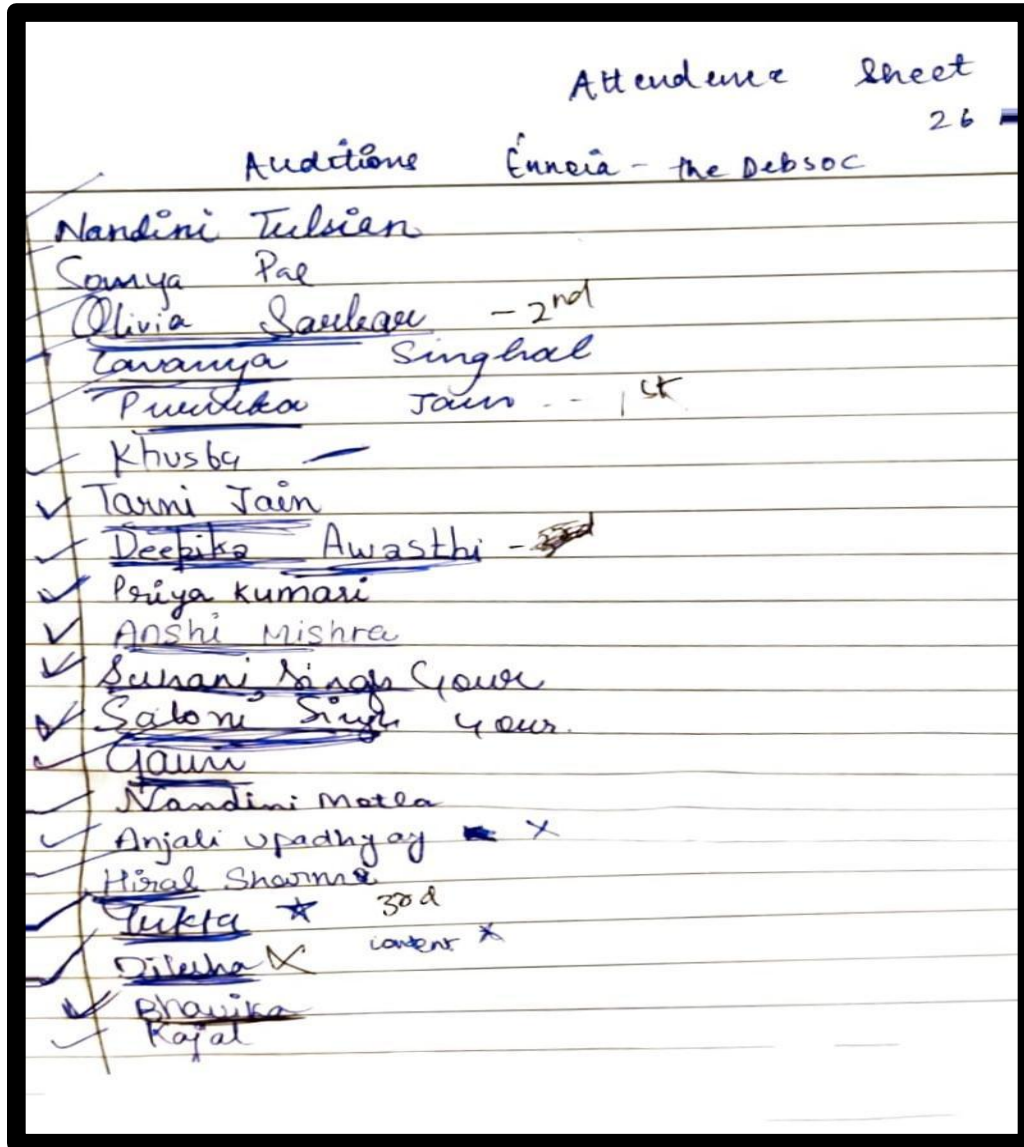 Attendence Sheet
26
Auditions Énnoia - the Debsoc
Nandini Tulsian
Somya Pal
Olivia Sarkar - 2nd
Lavanya Singhal
Jain -- 1st
Khusbu —
Tarni Jain
Deepika Awasthi -
Priya Kumari
Anshi Mishra
Suhani Singh Gour
Saloni Singh Gour.
Gauri
Nandini Motla
Anjali Upadhyay x
Hiral Sharma
Yukta ☆ 3rd
content x
x
Bhavika
Kajal